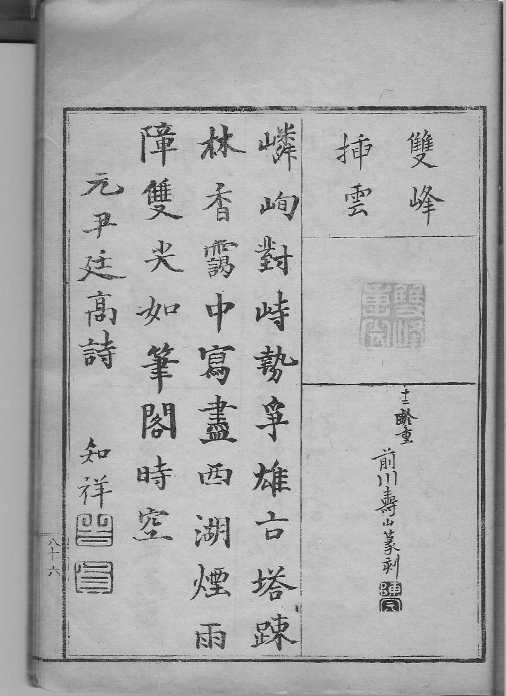 雙峰
挿雲
雙峰
挿雲
十二齡童
前川壽山篆刻
嶙峋對峙勢爭雄古塔踈
林杳靄中寫盡西湖煙雨
障雙尖如筆閣時空
元尹廷高詩 知祥
八十六